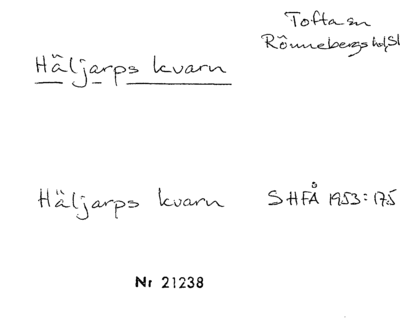 Tofta sn
Rönnebergs hd, Sk
Häljarps kvarn
Häljarps kvarn SHFÅ 1953:175
Nr 21238